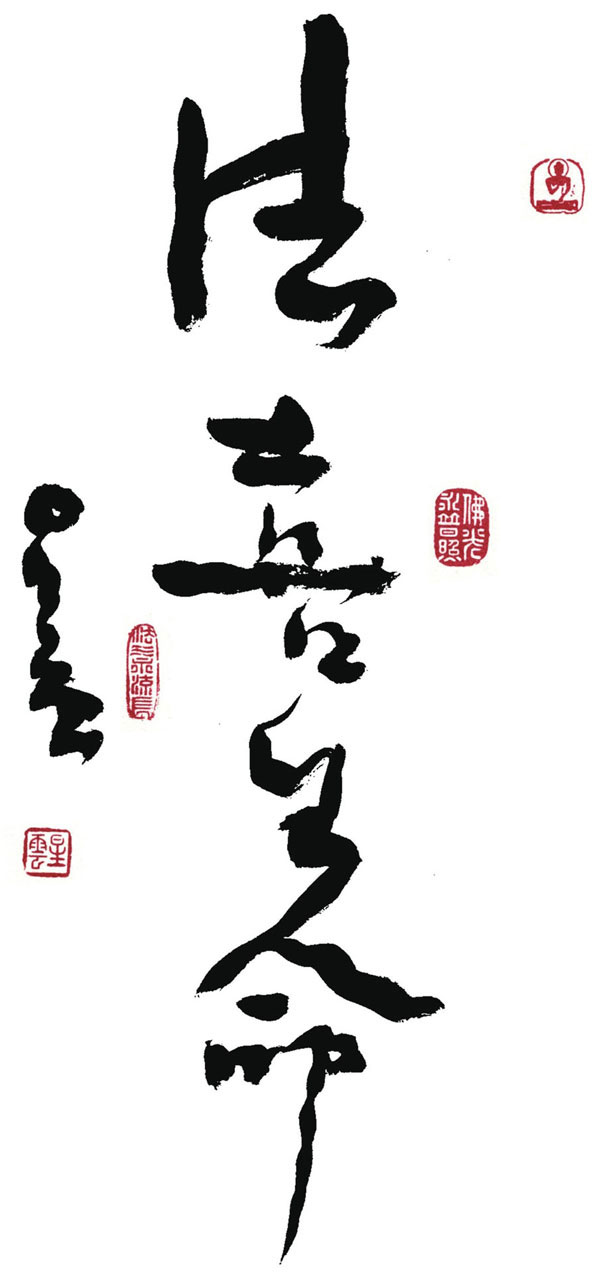 法喜生命
佛光
永普照
法水流長
星雲
星雲